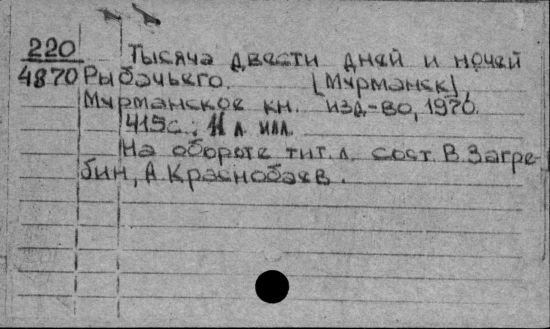 220 Тысяча двести дней и ночей
4870 Рыбачьего. [Мурманск],
Мурманское кн. изд-во, 1970.
415с.; 11 л. илл.
На обороте тит. л. сост. В. Загре-
бин, А. Краснобаев.